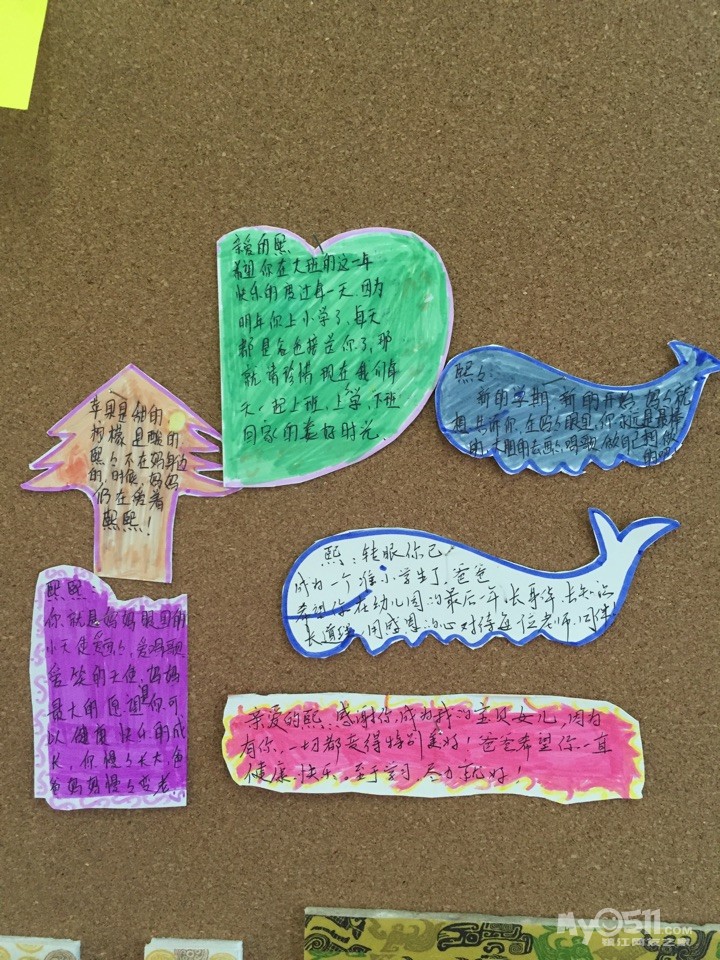 亲爱的熙:
希望你在大班的这一年
快乐的度过每一天.因为
明年你上小学了,每天
都是爸爸接送你了,那
就请珍惜现在我们每
天一起上班,上学,下班
回家的美好时光.
熙々:
新的学期,新的开始,妈々就
想告诉你,在妈々眼里,你永远是最棒
的,大胆的去画々唱歌,做自己想做
的吧
苹果是甜的,
柠檬是酸的
熙々不在妈身边
的,时候,妈妈
仍在爱着
熙熙!
熙:转眼你已
成为一个准小学生了,爸爸
希望你在幼儿园的最后一年,长身体,长知识
长道理,用感恩的心对待每位老师,同伴
熙熙:
你就是妈妈眼里的
小天使,爱画々,爱唱歌
爱笑的天使,妈妈
最大的愿望是你可
以健康快乐的成
长,你慢々长大,爸
爸妈妈慢々变老.
亲爱的熙,感谢你,成为我的宝贝女儿,因为
有你,一切都变得特别美好!爸爸希望你一直
健康,快乐。至于学习,尽力就好!
MY0511.COM
镇江网友之家